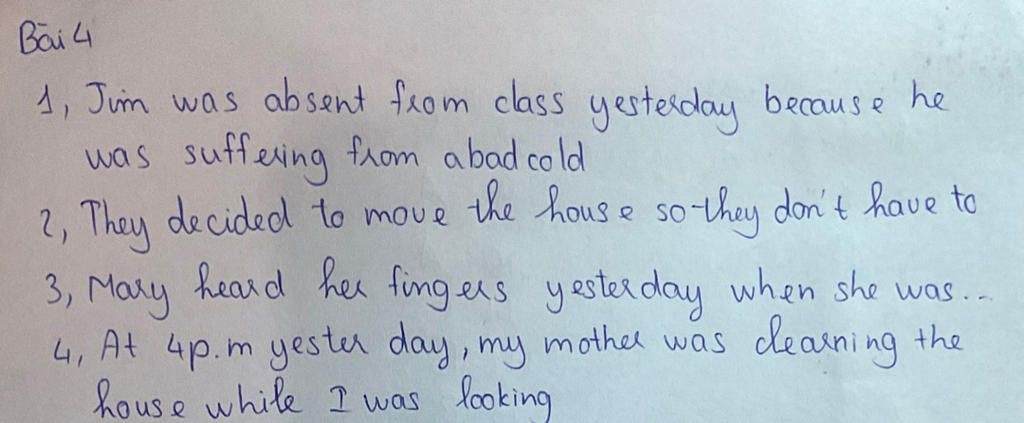 Bài 4
1, Jim was absent from class yesterday because he
was suffering from a bad cold
2, They decided to move the house so they don't have to
3, Mary heard her fingers yesterday when she was...
4, At 4p.m yester day, my mother was clearning the
house while I was looking